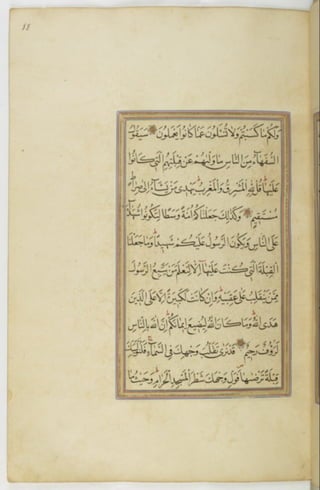 وَلَكُمْ مَا كَسَبْتُمْ وَلَا تُسْئَلُونَ عَمَّا كَانُوا يَعْمَلُونَ سَيَقُولُ
السُّفَهَاءُ مِنَ النَّاسِ مَا وَلّٰيهُمْ عَنْ قِبْلَتِهِمُ الَّتِي كَانُوا
عَلَيْهَا قُلْ لِلّٰهِ الْمَشْرِقُ وَالْمَغْرِبُ يَهْدِي مَنْ يَشَاءُ اِلَى صِرَاطٍ
مُسْتَقِيمٍ وَكَذٰلِكَ جَعَلْنَاكُمْ اُمَّةً وَسَطًا لِتَكُونُوا شُهَدَاءَ
عَلَى النَّاسِ وَيَكُونَ الرَّسُولُ عَلَيْكُمْ شَهِيدًا وَمَا جَعَلْنَا
الْقِبْلَةَ الَّتِي كُنْتَ عَلَيْهَا اِلَّا لِنَعْلَمَ مَنْ يَتَّبِعُ الرَّسُولَ
مِمَّنْ يَنْقَلِبُ عَلَى عَقِبَيْهِ وَاِنْ كَانَتْ لَكَبِيرَةً اِلَّا عَلَى الَّذِينَ
هَدَى اللّٰهُ وَمَا كَانَ اللّٰهُ لِيُضِيعَ اِيمَانَكُمْ اِنَّ اللّٰهَ بِالنَّاسِ
لَرَؤُفٌ رَحِيمٌ قَدْ نَرَى تَقَلُّبَ وَجْهِكَ فِي السَّمَاءِ فَلَنُوَلِّيَنَّكَ
قِبْلَةً تَرْضٰيهَا فَوَلِّ وَجْهَكَ شَطْرَ الْمَسْجِدِ الْحَرَامِ وَحَيْثُ مَا